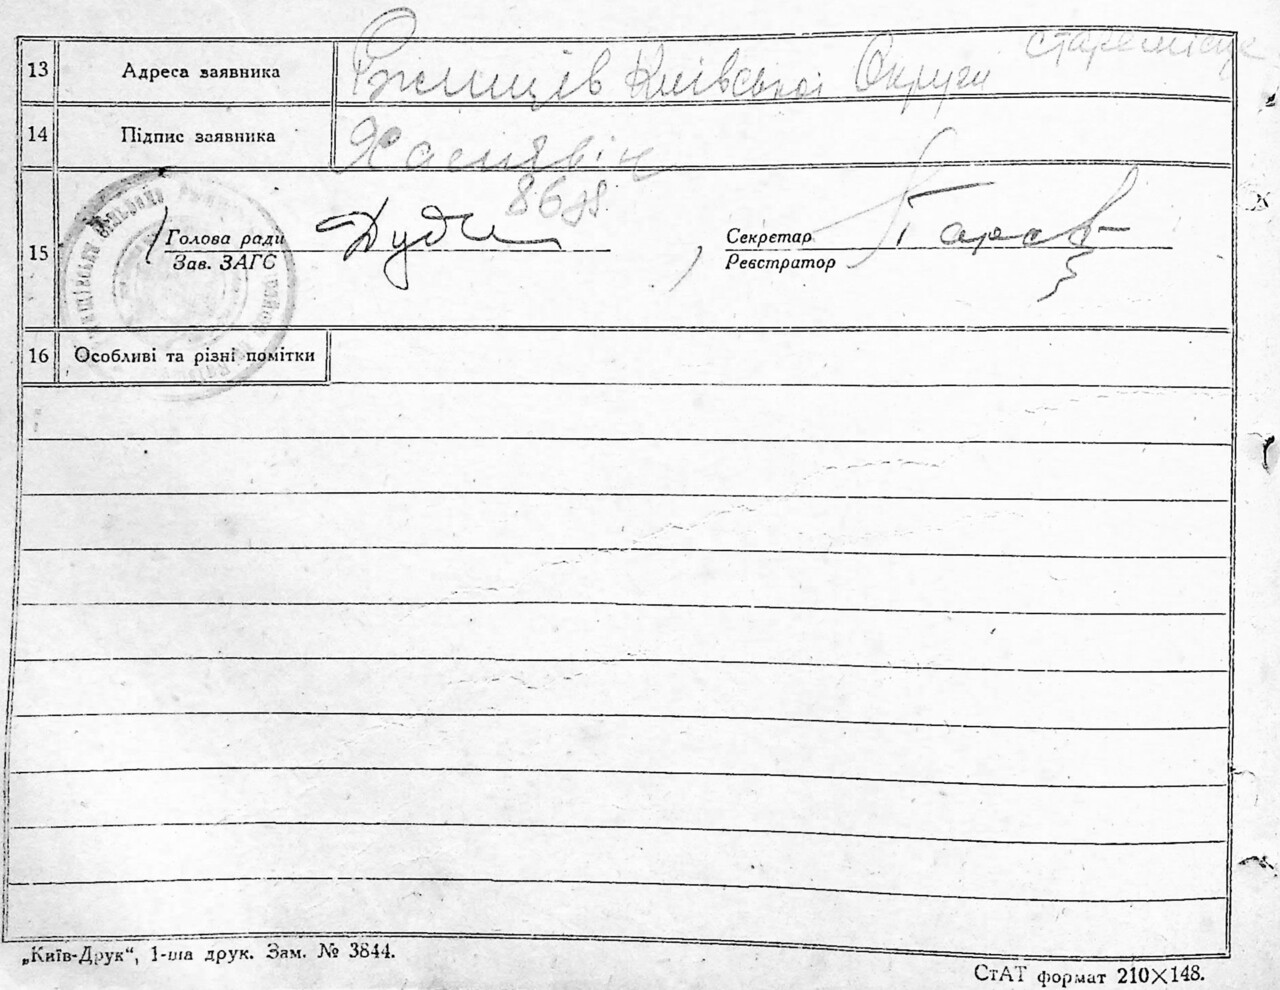 старемісце
13 Адреса заявника Ржищів Київської Округи
14 Підпис заявника
15 Голова ради
Зав. ЗАГС
Секретар
Реєстратор
16 Особливі та різні помітки
„Київ-Друк“, 1-ша друк. Зам. № 3844.
СтАТ формат 210×148.